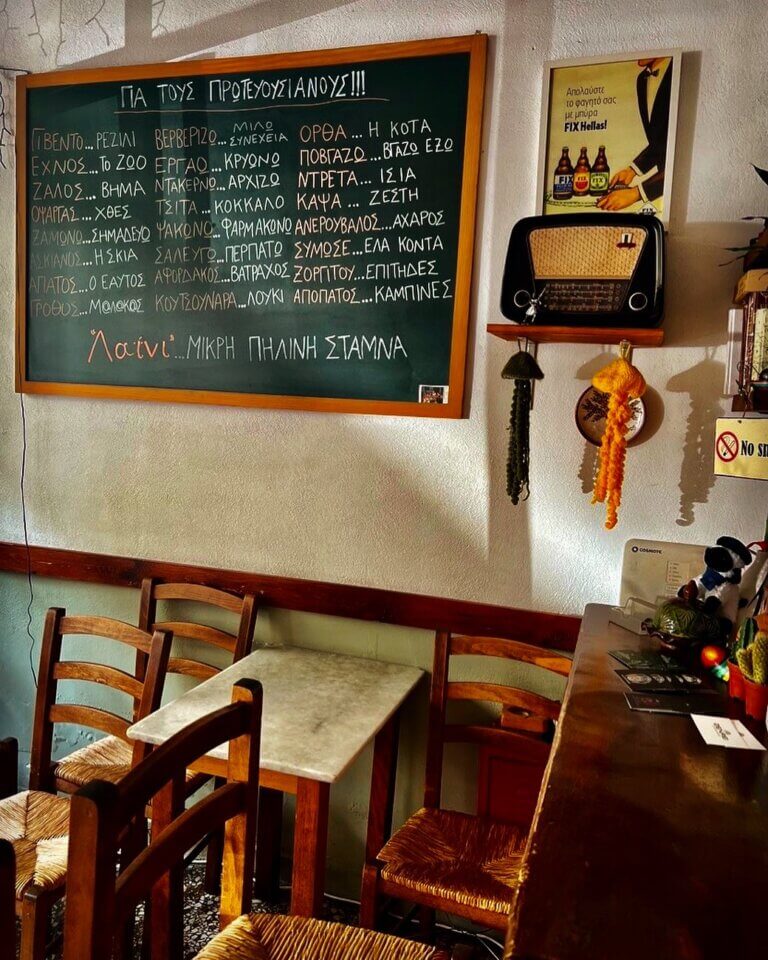 ΓΙΑ ΤΟΥΣ ΠΡΩΤΕΥΟΥΣΙΑΝΟΥΣ!!!
ΓΙΒΕΝΤΟ...ΡΕΖΙΛΙ
ΕΧΝΟΣ...ΤΟ ΖΩΟ
ΖΑΛΟΣ...ΒΗΜΑ
ΟΨΑΡΓΑΣ...ΧΘΕΣ
ΖΑΜΩΝΩ...ΣΗΜΑΔΕΥΩ
ΑΣΚΙΑΝΟΣ...Η ΣΚΙΑ
ΑΠΑΤΟΣ...Ο ΕΑΥΤΟΣ
ΓΡΟΘΟΣ...ΜΩΛΩΚΟΣ
ΒΕΡΒΕΡΙΖΩ...ΜΙΛΩ ΣΥΝΕΧΕΙΑ
ΕΡΓΑΩ...ΚΡΥΩΝΩ
ΝΤΑΚΕΡΝΩ...ΑΡΧΙΖΩ
ΤΣΙΤΑ...ΚΟΚΚΑΛΟ
ΨΑΚΩΝΩ...ΦΑΡΜΑΚΩΝΩ
ΣΑΛΕΥΓΩ...ΠΕΡΠΑΤΩ
ΑΦΟΡΔΑΚΟΣ...ΒΑΤΡΑΧΟΣ
ΚΟΥΤΣΟΥΝΑΡΑ...ΛΟΥΚΙ
ΟΡΘΑ...Η ΚΟΤΑ
ΠΟΒΓΑΖΩ...ΒΓΑΖΩ ΕΞΩ
ΝΤΡΕΤΑ...ΙΣΙΑ
ΚΑΨΑ...ΖΕΣΤΗ
ΑΝΕΡΟΥΒΑΛΟΣ...ΑΧΑΡΟΣ
ΣΥΜΩΣΕ...ΕΛΑ ΚΟΝΤΑ
ΖΟΡΓΙΤΟΥ...ΕΠΙΤΗΔΕΣ
ΑΠΟΠΑΤΟΣ...ΚΑΜΠΙΝΕΣ
"Λαΐνι"...ΜΙΚΡΗ ΠΗΛΙΝΗ ΣΤΑΜΝΑ
Απολαύστε
το φαγητό σας
με μπύρα
FIX Hellas!
FIX
No
COSMOTE